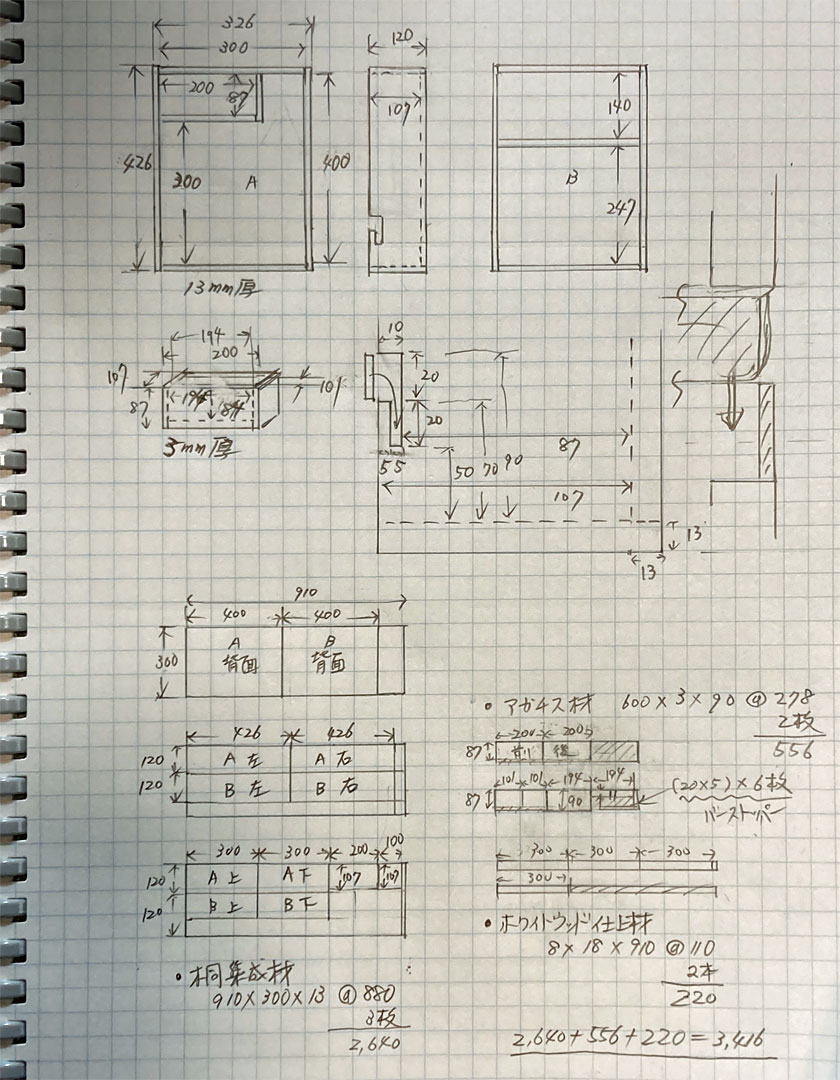 326
300
120
200
87
107
140
426
200
A
400
B
247
13mm厚
194
200
107
101
87
194
184
3mm厚
10
20
20
87
5 5
50 70 90
107
13
13
910
400 400
300
A
背面
B
背面
426 426
120
A 左 A 右
120
B 左 B 右
300 300 200 100
120
A 上 A 下 107 107
120
B 上 B 下
・桐集成材
910×300×13 @880
3枚
2,640
・アガチス材 600×3×90 @278
2枚
556
200 200
87
前 後
101 101 194 194
87
90
(20×5)×6枚
バーストッパー
300 300 300
300
・ホワイトウッド仕上材
8×18×910 @110
2本
220
2,640+556+220=3,416